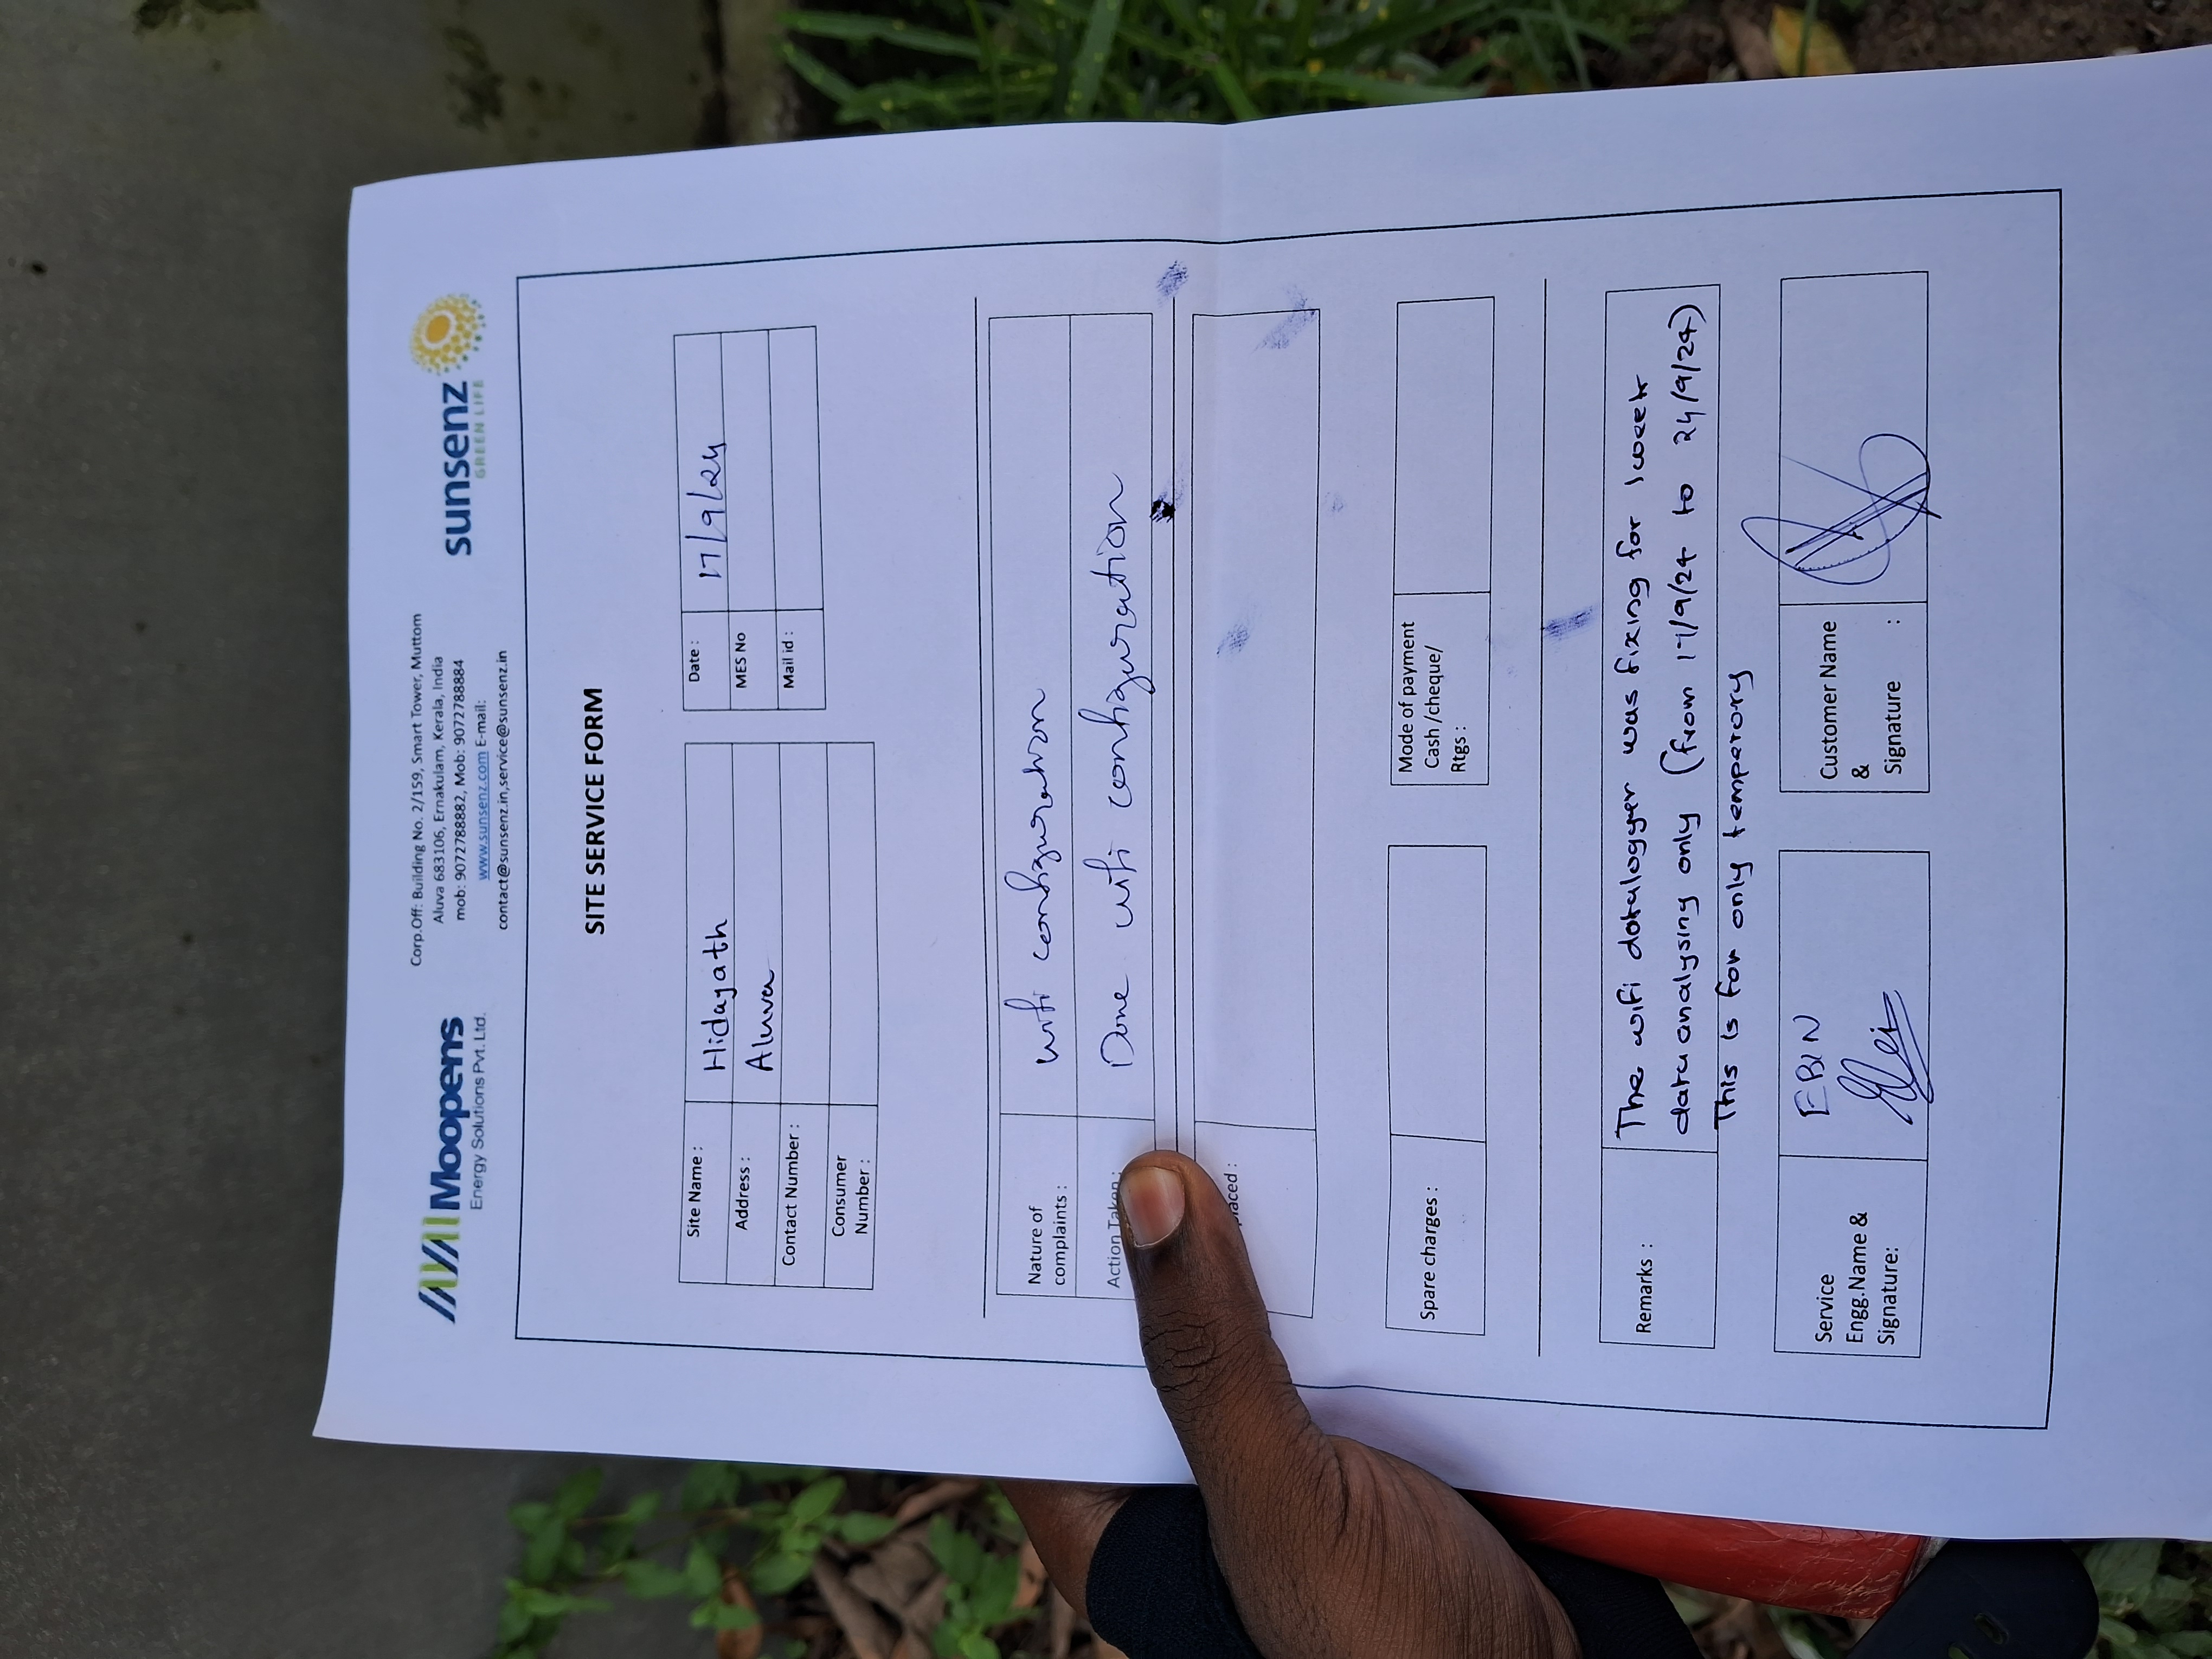 Moopens
Energy Solutions Pvt. Ltd.
Corp.Off: Building No. 2/159, Smart Tower, Muttom
Aluva 683106, Ernakulam, Kerala, India
mob: 9072788882, Mob: 9072788884
www.sunsenz.com E-mail:
contact@sunsenz.in,service@sunsenz.in
sunsenz
GREEN LIFE
SITE SERVICE FORM
Site Name : Hidayath
Address : Aluva
Contact Number :
Consumer
Number :
Date : 17/9/24
MES No
Mail id :
Nature of
complaints :
wifi configuration
Action Taken : Done wifi configuration
placed :
Spare charges :
Mode of payment
Cash /cheque/
Rtgs :
Remarks :
The wifi datalogger was fixing for 1 week
data analysing only (from 17/9/24 to 24/9/24)
This is for only temperory
Service
Engg.Name &
Signature:
EBIN
Customer Name
&
Signature :